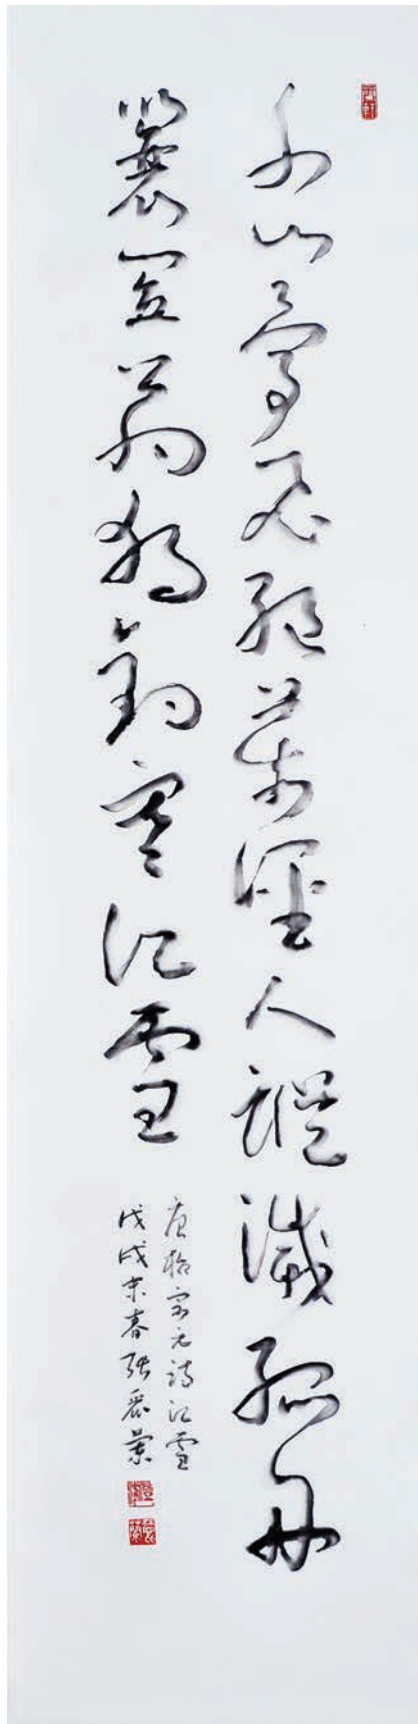 千山鳥飛絕萬徑人蹤滅孤舟
蓑笠翁獨釣寒江雪
唐柳宗元詩江雪
戊戌末春張